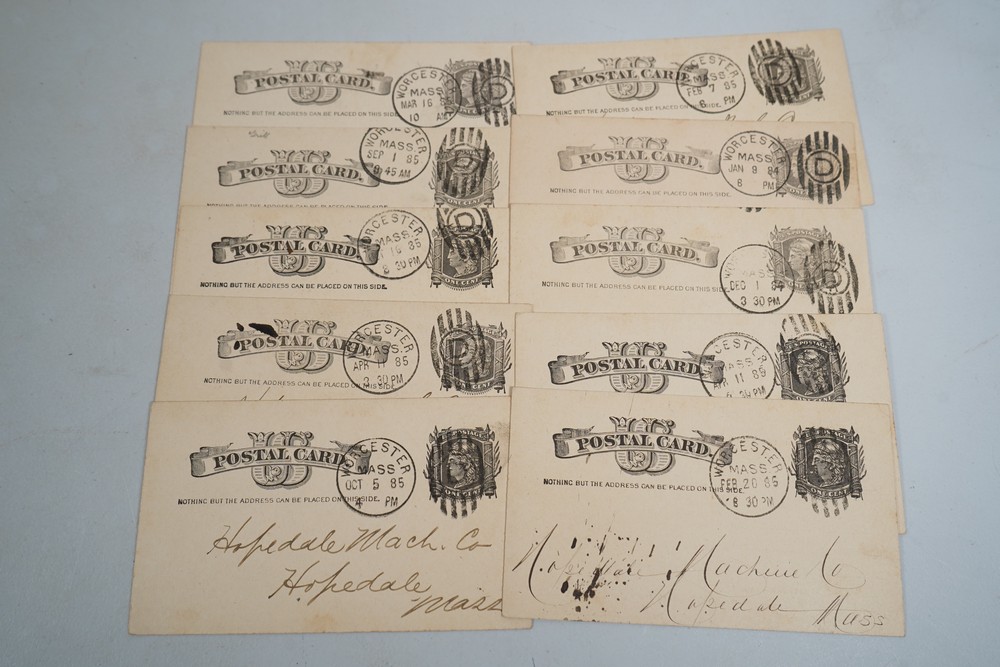 POSTAL CARD.
NOTHING BUT THE ADDRESS CAN BE PLACED ON
WORCESTER
MASS.
MAR 16
10 AM
D
POSTAL CARD.
SIDE.
WORCESTER
MASS
FEB 7 85
PM
D
POSTAL CARD.
WORCESTER
MASS.
SEP 1 85
45 AM
D
ONE CENT
POSTAL CARD.
NOTHING BUT THE ADDRESS CAN BE PLACED ON THIS SIDE.
WORCESTER
MASS
JAN 84
PM
D
POSTAL CARD.
NOTHING BUT THE ADDRESS CAN BE PLACED ON THIS SIDE.
WORCESTER
MASS.
30 PM
D
ONE CENT
POSTAL CARD.
NOTHING BUT THE ADDRESS CAN BE PLACED ON THIS SIDE.
MASS
DEC 1 84
3 30 PM
POSTAL CARD.
NOTHING BUT THE ADDRESS CAN BE PLACED ON THIS SIDE
WORCESTER
MASS.
APR 11 85
30 PM
D
ONE CENT
POSTAL CARD.
NOTHING BUT THE ADDRESS CAN BE PLACED ON THIS SIDE.
WORCESTER
MASS
11
30 PM
U.S. POSTAGE
ONE CENT
POSTAL CARD.
NOTHING BUT THE ADDRESS CAN BE PLACED ON THIS SIDE.
WORCESTER
MASS
OCT 5 85
4 PM
ONE CENT
Hopedale Mach. Co
Hopedale
Mass
POSTAL CARD.
NOTHING BUT THE ADDRESS CAN BE PLACED ON THIS SIDE.
WORCESTER
MASS
FEB
8 30 PM
ONE CENT
Hopedale Machine Co
Hopedale
Mass